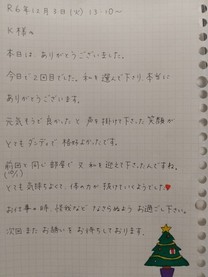 R6年12月3日(火) 13:10〜
K様へ
本日は、ありがとうございました。
今日で2回目でした。私を選んで下り、本当に
ありがとうございます。
元気そうで良かったと声を掛けて下さった笑顔が
とてもダンディで格好よかったです。
前回と同じ部屋で又、私を迎えて下さたんですね。
とても気持ちよくて、体の力が抜けていくようでした
お仕事の時、怪我など なさらぬよう お過ごし下さい。
次回また お願いを お待ちしております。